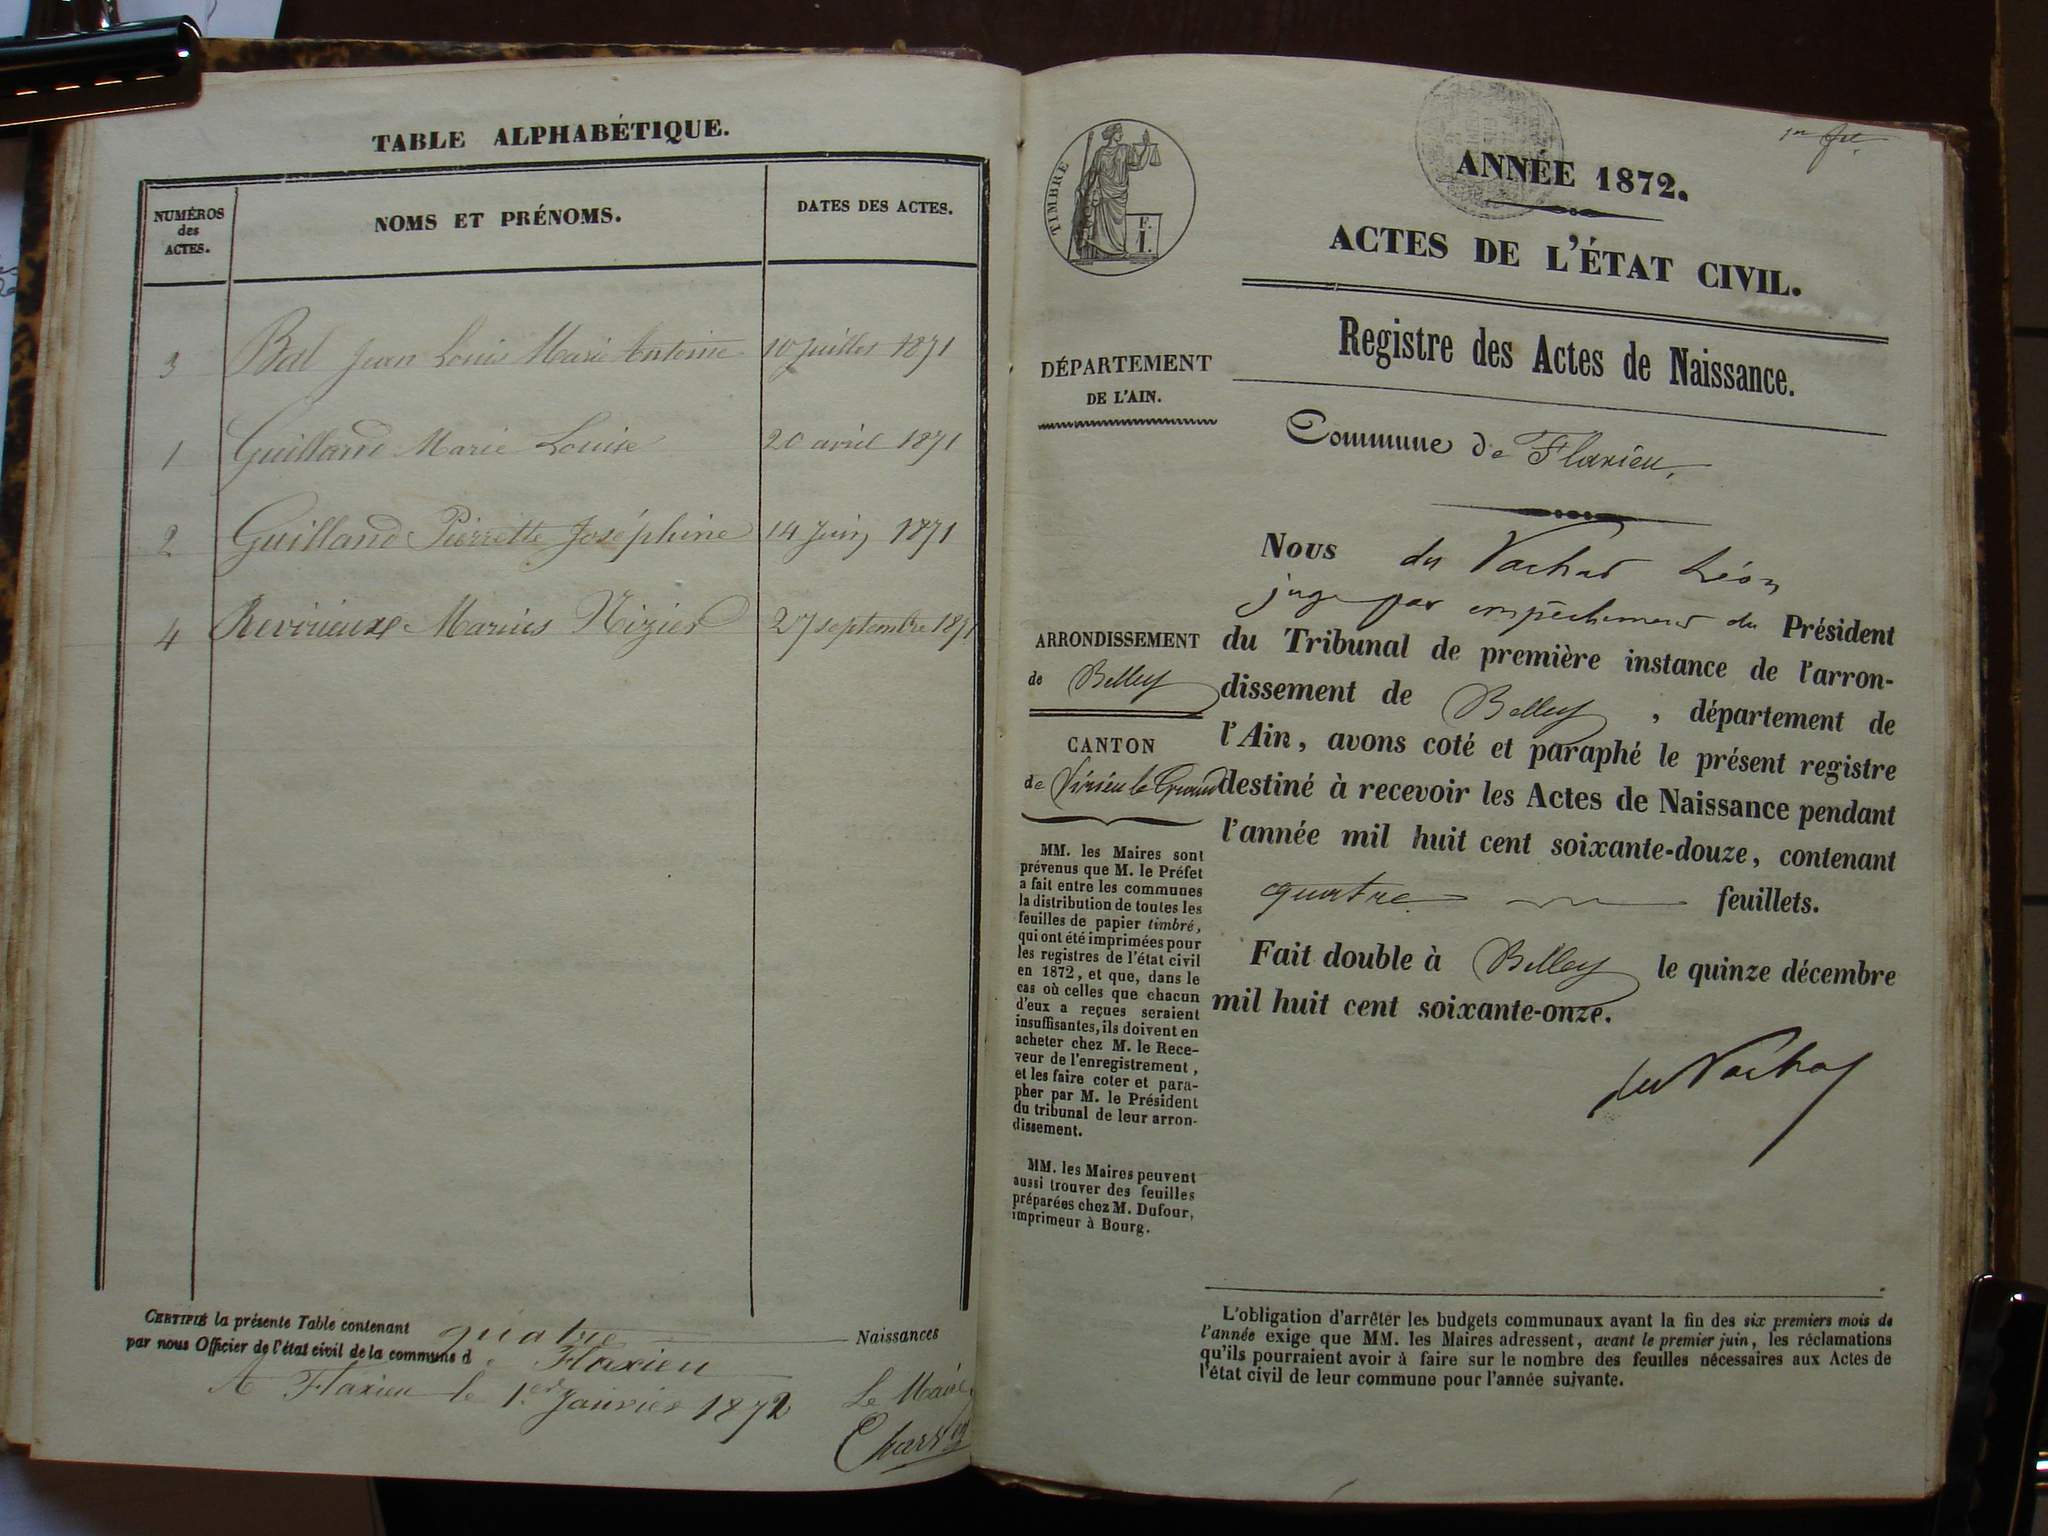 TABLE ALPHABÉTIQUE.
NUMÉROS
des
ACTES.
NOMS ET PRÉNOMS.
DATES DES ACTES.
3 Bal Jean Louis Marie Antoine 10 Juillet 1871
1 Guilland Marie Louise 20 avril 1871
2 Guilland Pierrette Joséphine 14 Juin 1871
4 Revirieux Marius Nizier 27 septembre 1871
CERTIFIÉ la présente Table contenant quatre Naissances
par nous Officier de l'état civil de la commune d e Flaxieu
A Flaxieu le 1er Janvier 1872 Le Maire
TIMBRE
F.
I.
1er fet
ANNÉE 1872.
ACTES DE L'ÉTAT CIVIL.
Registre des Actes de Naissance.
DÉPARTEMENT
DE L'AIN.
Commune de Flaxieu
ARRONDISSEMENT
de Belley
CANTON
de Virieu le Grand
MM. les Maires sont
prévenus que M. le Préfet
a fait entre les communes
la distribution de toutes les
feuilles de papier timbré,
qui ont été imprimées pour
les registres de l'état civil
en 1872, et que, dans le
cas où celles que chacun
d'eux a reçues seraient
insuffisantes, ils doivent en
acheter chez M. le Rece-
veur de l'enregistrement,
et les faire coter et para-
pher par M. le Président
du tribunal de leur arron-
dissement.
MM. les Maires peuvent
aussi trouver des feuilles
préparées chez M. Dufour,
imprimeur à Bourg.
Nous du Vachat Léon
juge par empêchement du Président
du Tribunal de première instance de l'arron-
dissement de Belley, département de
l'Ain, avons coté et paraphé le présent registre
destiné à recevoir les Actes de Naissance pendant
l'année mil huit cent soixante-douze, contenant
quatre feuillets.
Fait double à Belley le quinze décembre
mil huit cent soixante-onze.
du Vachat
L'obligation d'arrêter les budgets communaux avant la fin des six premiers mois de
l'année exige que MM. les Maires adressent, avant le premier juin, les réclamations
qu'ils pourraient avoir à faire sur le nombre des feuilles nécessaires aux Actes de
l'état civil de leur commune pour l'année suivante.